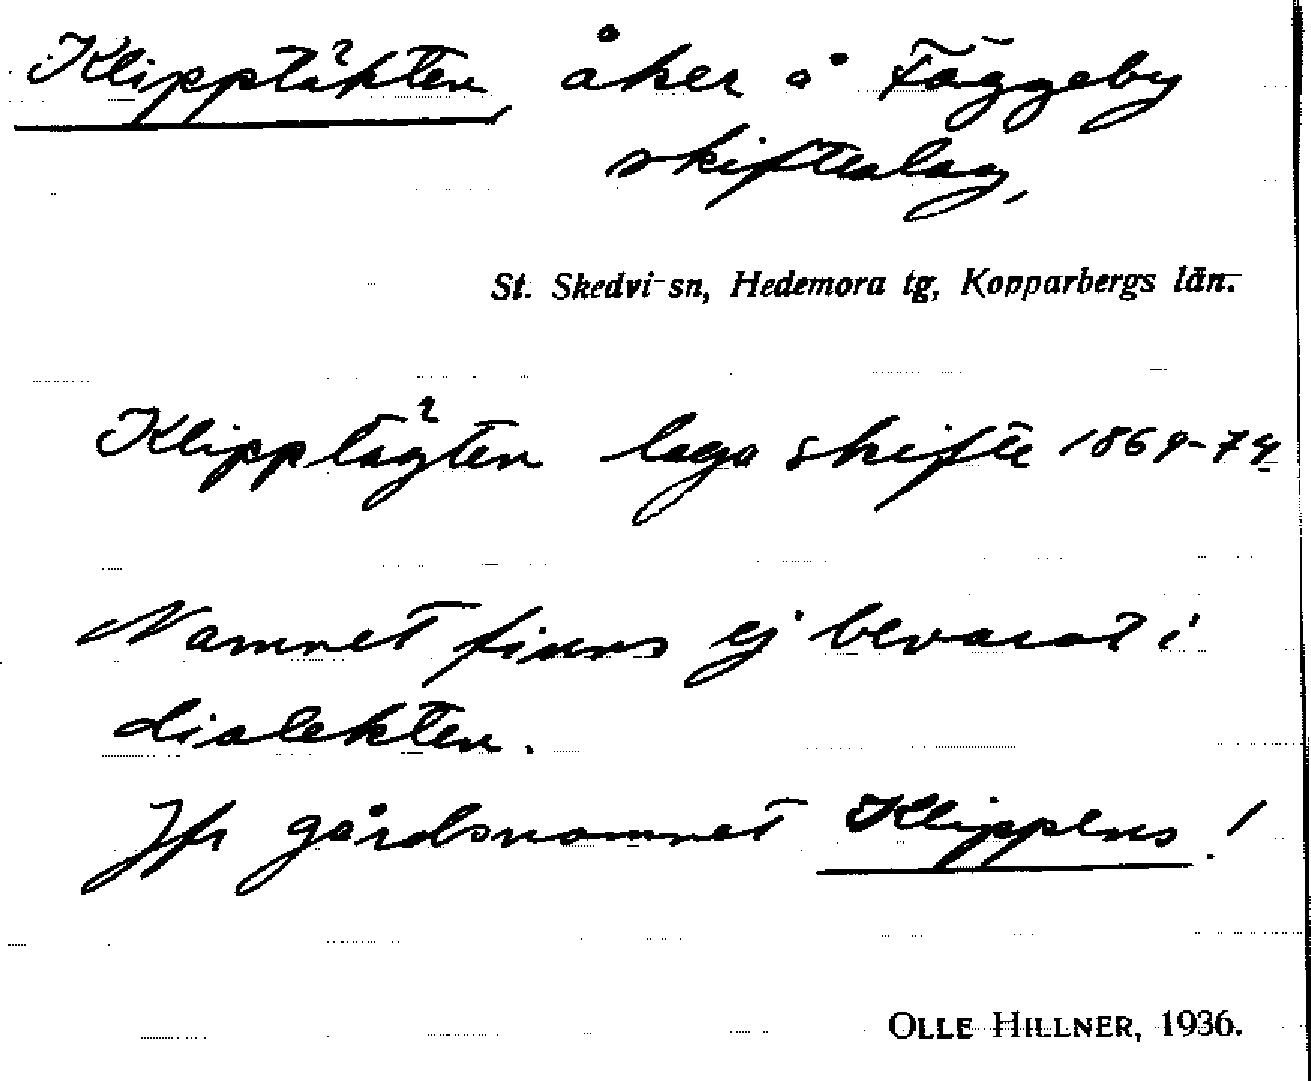 Klipptäkten, åker å Fäggeby
skifteslag,
St. Skedvi sn, Hedemora tg, Kopparbergs län.
Klipptägten laga skifte 1869-74
Namnet finns ej bevarat i
dialekten.
Jfr gårdsnamnet Klippens!
OLLE HILLNER, 1936.